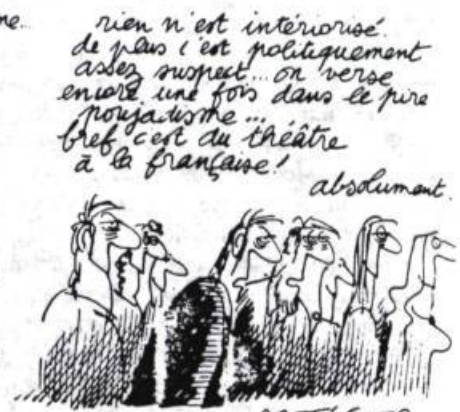 ne...
rien n'est intériorisé.
de plus c'est politiquement
assez suspect... on verse
encore une fois dans le pire
poujadisme...
bref c'est du théâtre
à la française!
absolument.